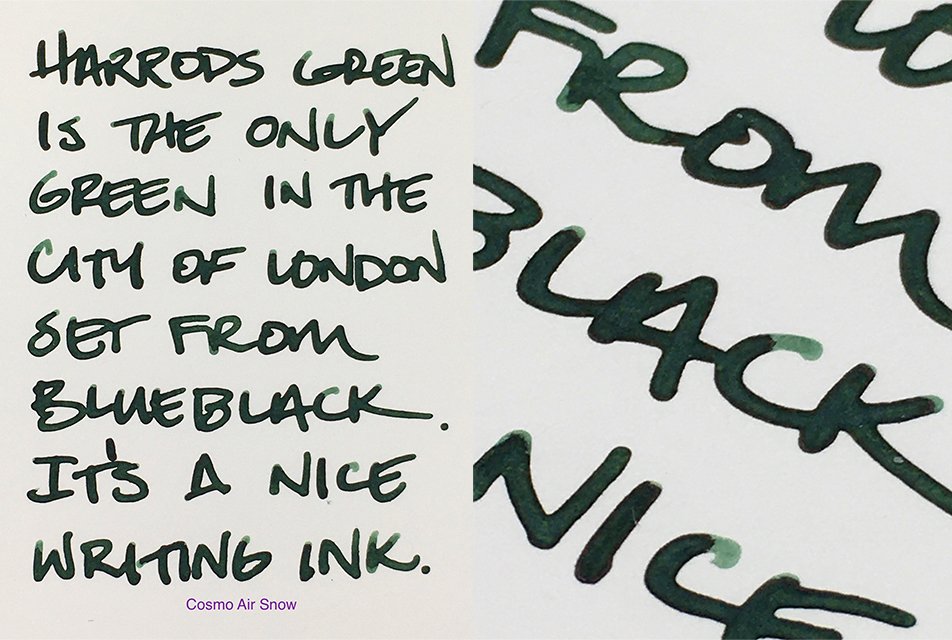 HARRODS GREEN
IS THE ONLY
GREEN IN THE
CITY OF LONDON
SET FROM
BLUEBLACK.
IT'S A NICE
WRITING INK.
Cosmo Air Snow
FROM
BLACK
NICE